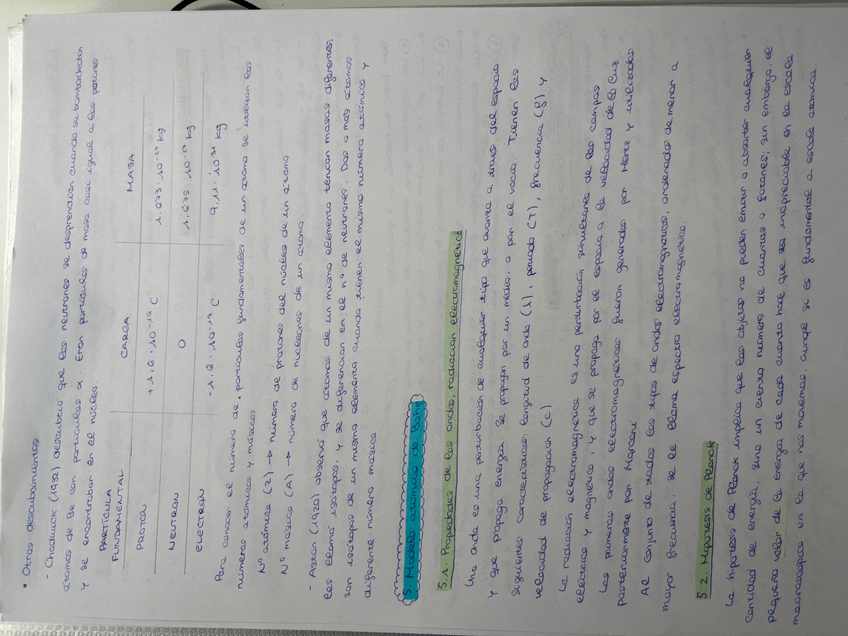 • Otros descubrimientos
- Chadwick (1932) descubrió que los neutrones se desprendían cuando se bombardeaban
átomos de Be con partículas α. Eran partículas de masa casi igual a los protones
y se encontraban en el núcleo
PARTÍCULA FUNDAMENTAL CARGA MASA
PROTÓN +1.6 · 10⁻¹⁹ C 1.673 · 10⁻²⁷ kg
NEUTRÓN 0 1.675 · 10⁻²⁷ kg
ELECTRÓN -1.6 · 10⁻¹⁹ C 9.11 · 10⁻³¹ kg
Para conocer el número de partículas fundamentales de un átomo se utilizan los
números atómicos y másicos
Nº atómico (Z) → número de protones del núcleo de un átomo
Nº másico (A) → número de nucleones de un átomo.
- Aston (1920) observó que átomos de un mismo elemento tenían masas diferentes,
les llamó isótopos, y se diferencian en el nº de neutrones. Dos o más átomos
son isótopos de un mismo elemento cuando tienen el mismo número atómico y
diferente número másico
5. Modelo atómico de Bohr
5.1. Propiedades de las ondas, radiación electromagnética
Una onda es una perturbación de cualquier tipo que avanza a través del espacio
y que propaga energía. Se propagan por un medio, o por el vacío. Tienen las
siguientes características: longitud de onda (λ), periodo (T), frecuencia (f) y
velocidad de propagación (c)
La radiación electromagnética es una perturbación simultánea de los campos
eléctricos y magnético, y que se propaga por el espacio a la velocidad de la luz.
Las primeras ondas electromagnéticas fueron generadas por Hertz y utilizadas
posteriormente por Marconi
Al conjunto de todos los tipos de ondas electromagnéticas, ordenadas de menor a
mayor frecuencia, se le llama espectro electromagnético
5.2. Hipótesis de Planck
La hipótesis de Planck implica que los objetos no pueden emitir o absorber cualquier
cantidad de energía, sino un cierto número de cuantos o fotones; sin embargo, el
pequeño valor de la energía de cada cuanto hace que sea inapreciable en la escala
macroscópica en la que nos movemos, aunque sí es fundamental a escala atómica.